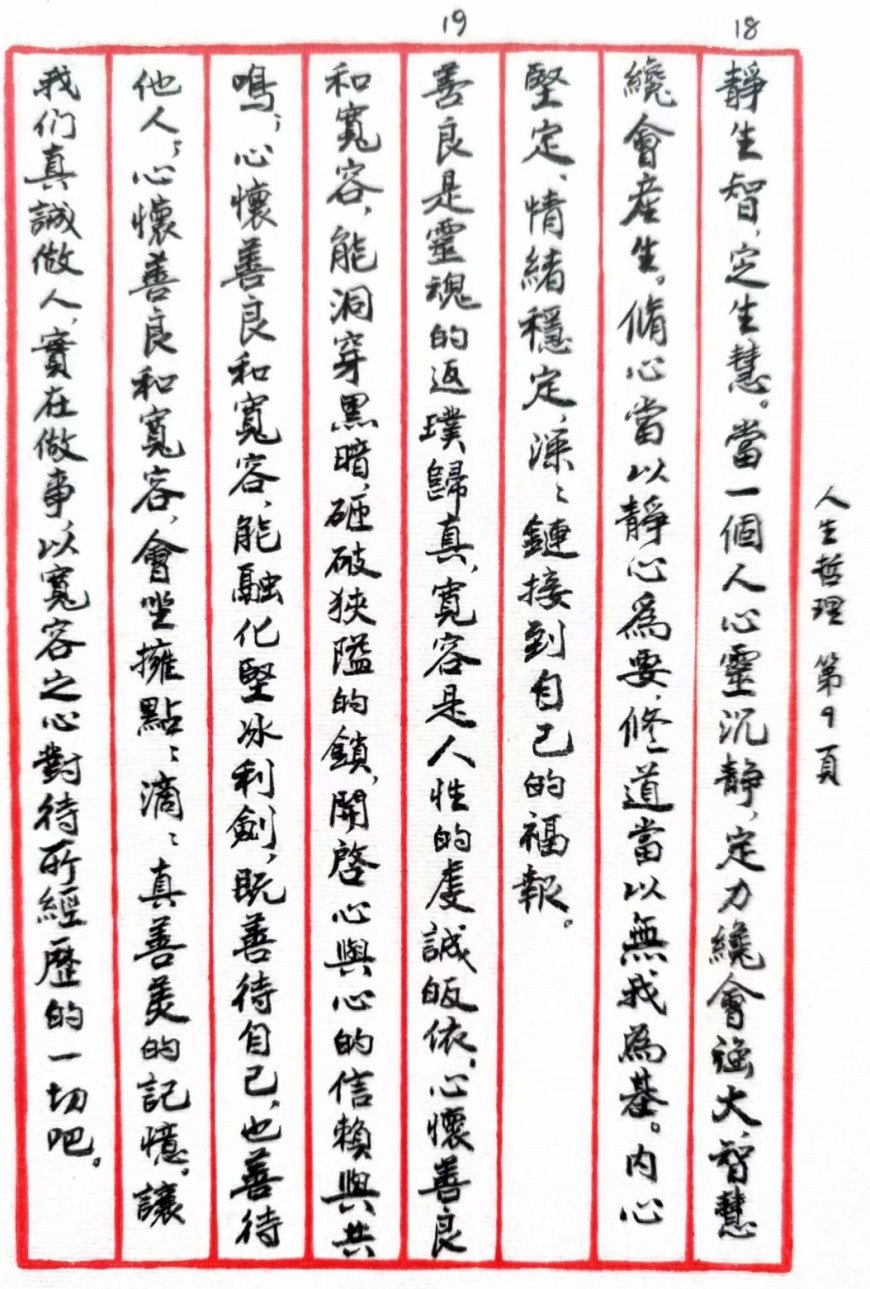 人生哲理 第9頁
18
靜生智，定生慧。當一個人心靈沉靜，定力纔會强大，智慧
纔會産生。脩心當以靜心爲要，修道當以無我爲基。内心
堅定、情緒穩定，深深鏈接到自己的福報。
19
善良是靈魂的返璞歸真，寬容是人性的虔誠皈依。心懷善良
和寬容，能洞穿黑暗，砸破狹隘的鎖，開啓心與心的信賴與共
鳴；心懷善良和寬容，能融化堅冰利劍，既善待自己，也善待
他人；心懷善良和寬容，會坐擁點點滴滴真善美的記憶。讓
我们真誠做人，實在做事，以寬容之心對待所經歷的一切吧。